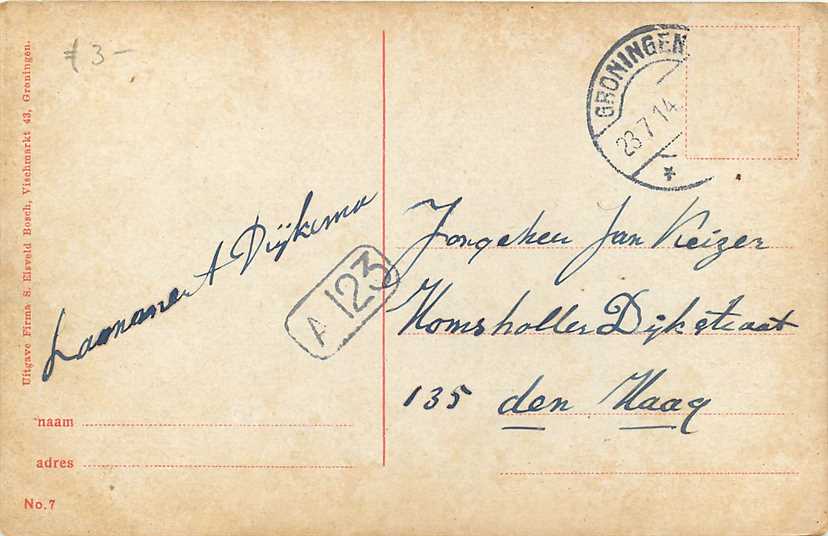 Uitgave Firma S. Elsveld Bosch, Vischmarkt 43, Groningen.
ƒ 3-
GRONINGEN
23.7.14
A Dijksma
A 123
Jongeheer Jan Keizer
Dijkstraat
135 den Haag
naam
adres
No. 7